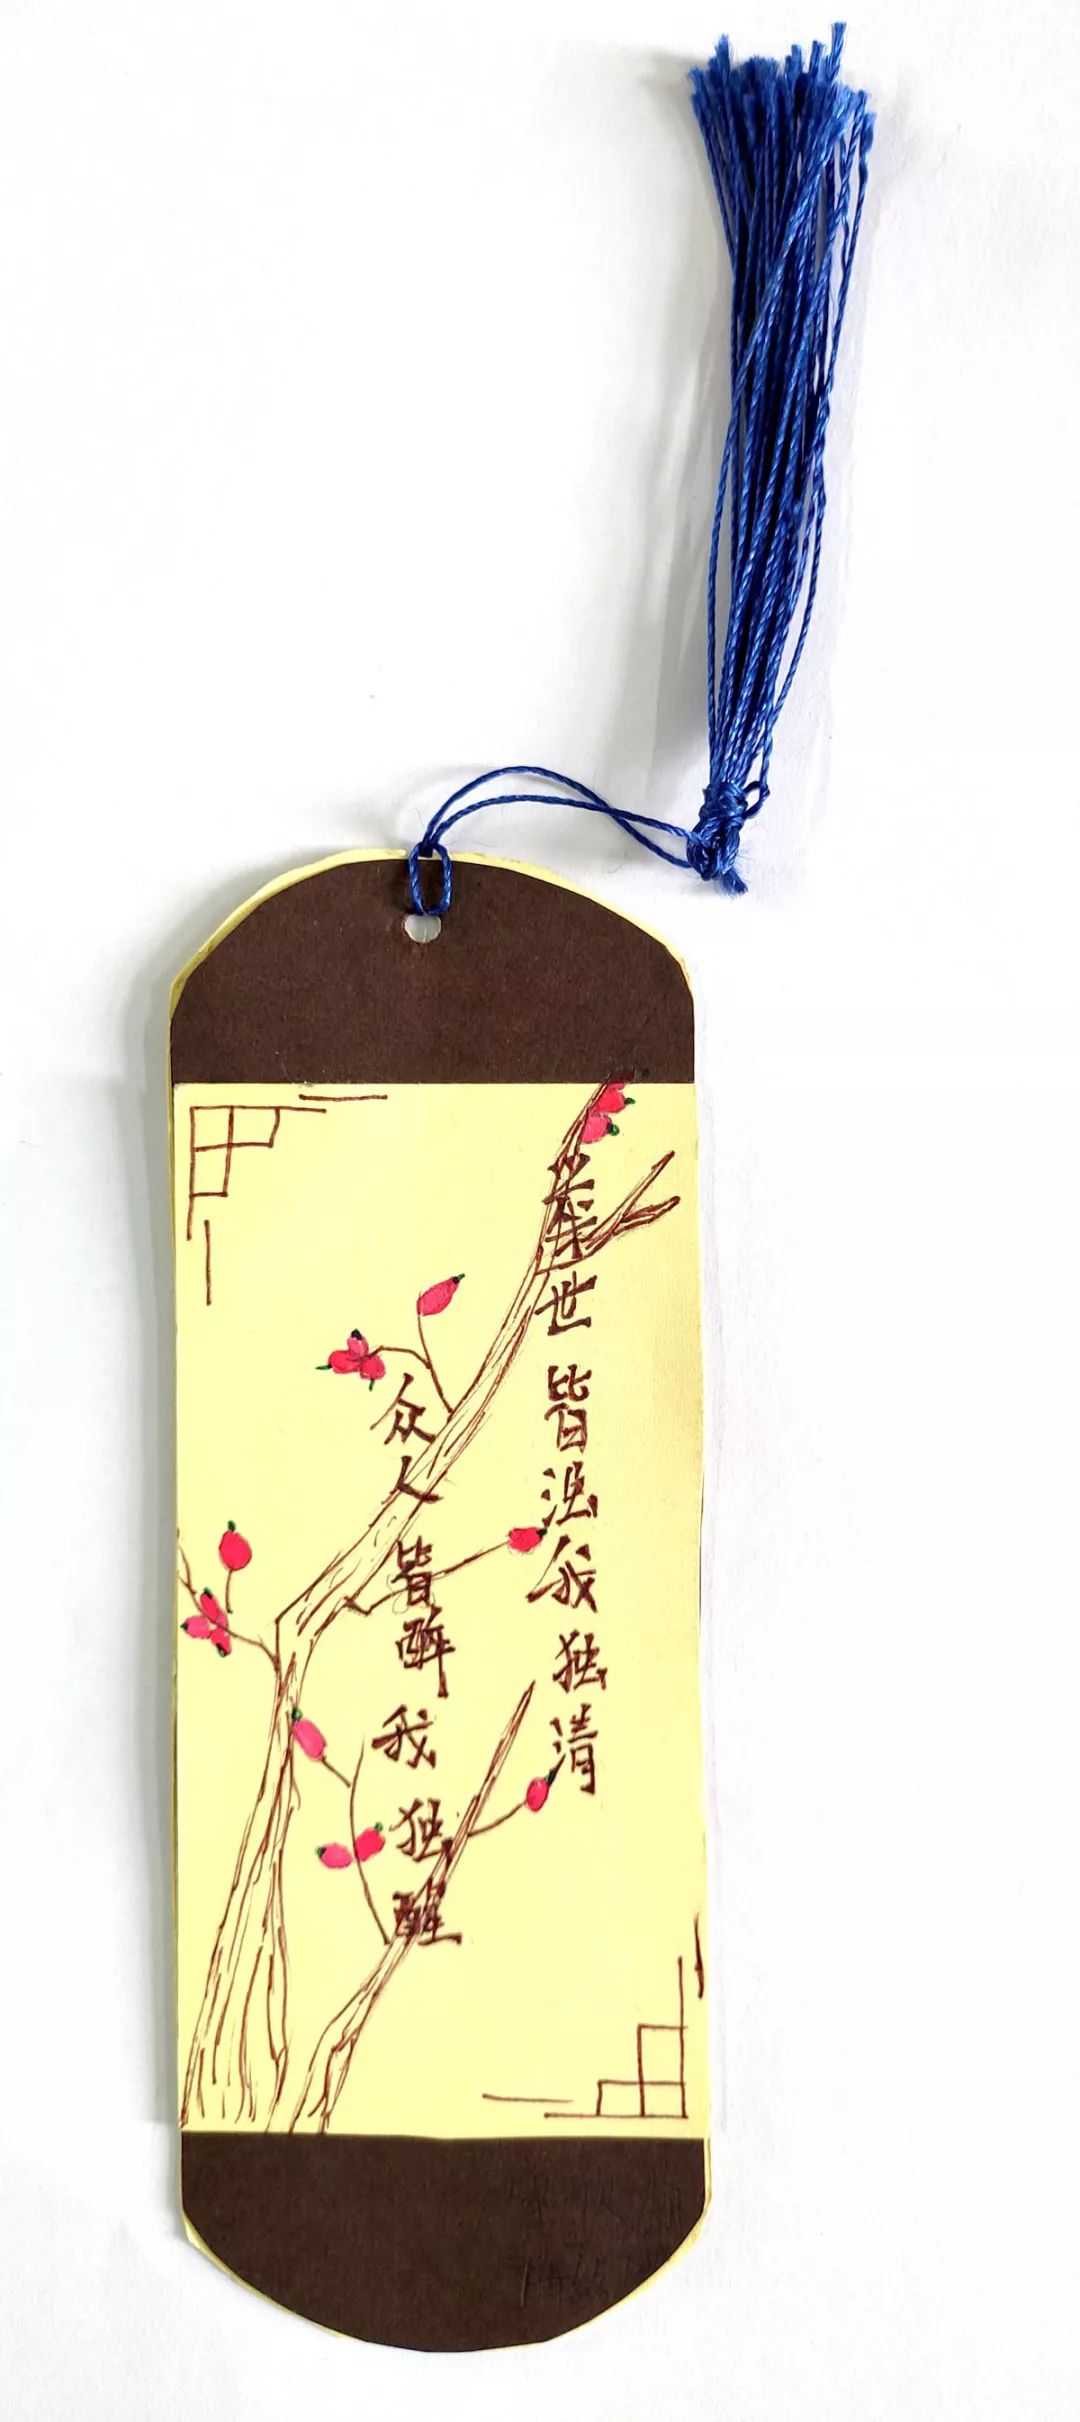 举世皆浊我独清
众人皆醉我独醒